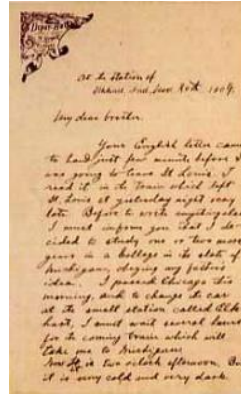 At the Station of
Ind. Nov. 30th 1904.
My dear brother.
Your English letter came
to hand just few minits before I
was going to leave St Louis. I
read it in the train which left
St. Louis at yesterday night very
late. Before to write anything else
I must inform you that I de-
cided to study one or two more
years in a college in the state of
Michigan, obeying my father's
idea. I passed Chicago this
morning, and to change its car
at the small station called Elk-
hart, I must wait several hours
for the coming train which will
take me to Michigan.
Now it is two o'clock afternoon. But
it is very cold and very dark